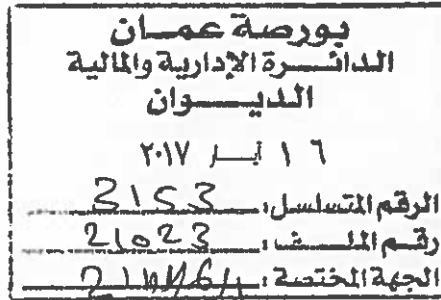 بورصة عمان
الدائرة الإدارية والمالية
الديوان
١٦ أيار ٢٠١٧
الرقم المتسلسل: 3153
رقم الملف: 21023
الجهة المختصة: